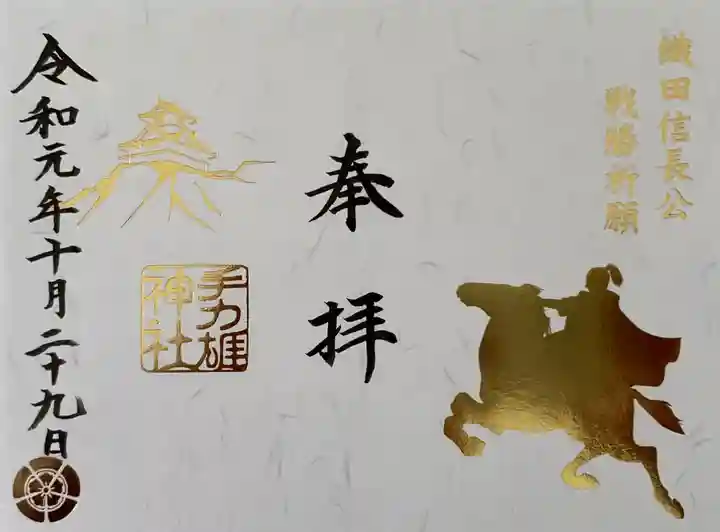 織田信長公
戦勝祈願
奉拝
手力雄
神社
令和元年十月二十九日